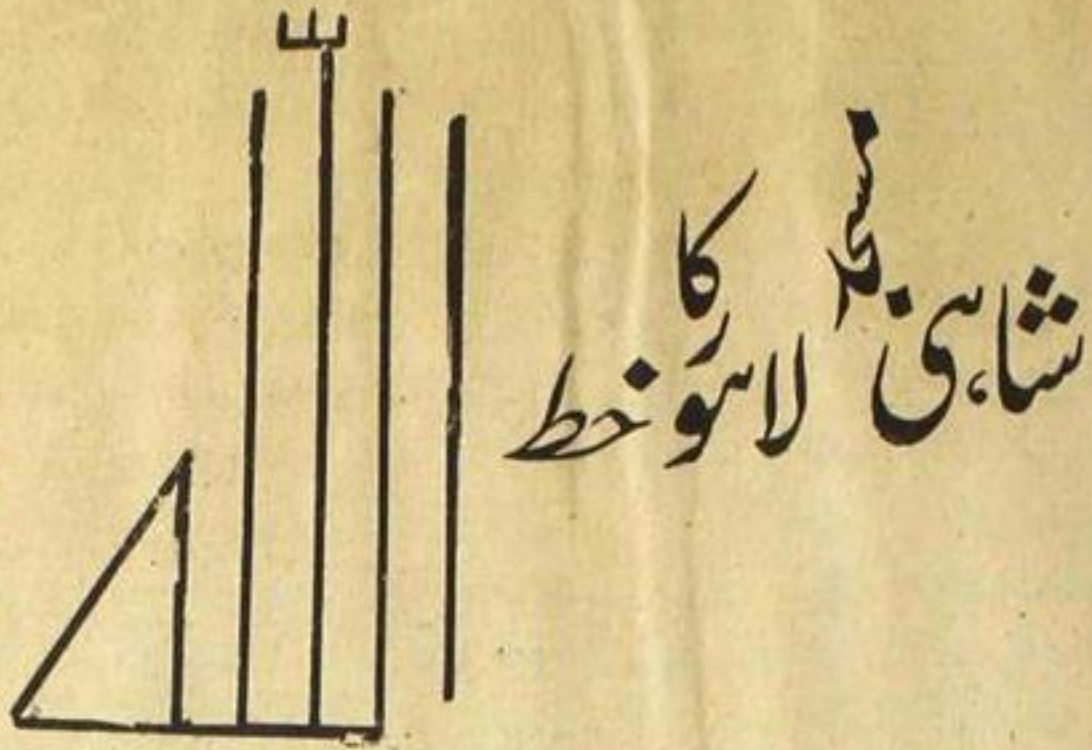 شاہی مسجد لاہور کا خط
اللہ